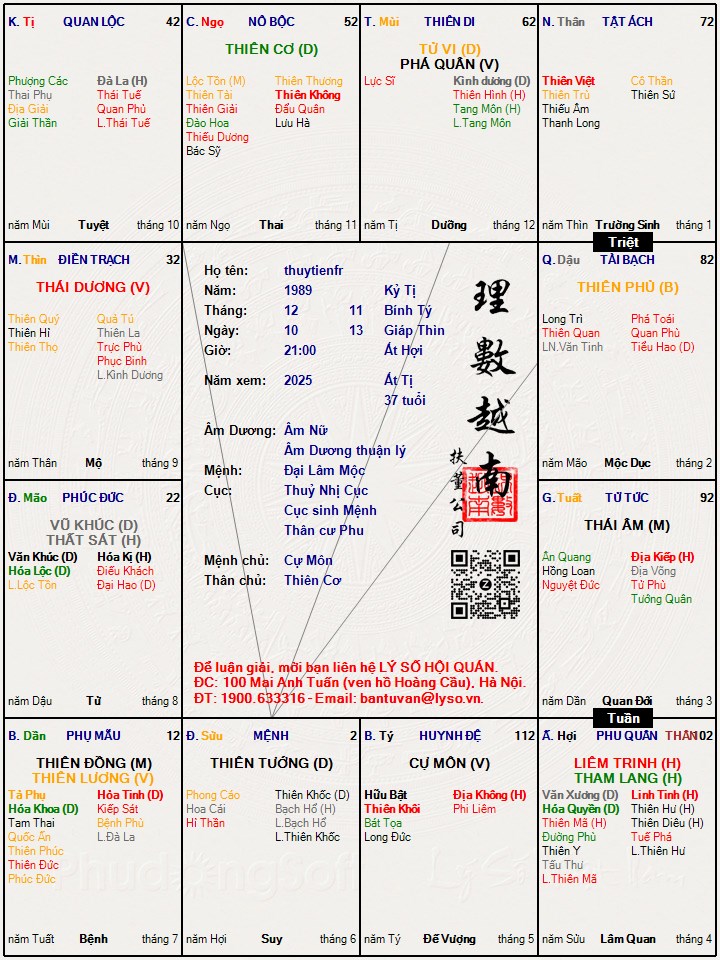 K. Tị QUAN LỘC 42
Phượng Các Đà La (H)
Thai Phụ Thái Tuế
Địa Giải Quan Phủ
Giải Thần L.Thái Tuế
năm Mùi Tuyệt tháng 10
C. Ngọ NÔ BỘC 52
THIÊN CƠ (D)
Lộc Tồn (M) Thiên Thương
Thiên Tài Thiên Không
Thiên Giải Đẩu Quân
Đào Hoa Lưu Hà
Thiếu Dương
Bác Sỹ
năm Ngọ Thai tháng 11
T. Mùi THIÊN DI 62
TỬ VI (D)
PHÁ QUÂN (V)
Lực Sĩ Kình dương (D)
Thiên Hình (H)
Tang Môn (H)
L.Tang Môn
năm Tị Dưỡng tháng 12
N. Thân TẬT ÁCH 72
Thiên Việt Cô Thần
Thiên Trù Thiên Sứ
Thiếu Âm
Thanh Long
năm Thìn Trường Sinh tháng 1
Triệt
M. Thìn ĐIỀN TRẠCH 32
THÁI DƯƠNG (V)
Thiên Quý Quả Tú
Thiên Hỉ Thiên La
Thiên Thọ Trực Phù
Phục Binh
L.Kình Dương
năm Thân Mộ tháng 9
Họ tên: thuytienfr
Năm: 1989 Kỷ Tị
Tháng: 12 11 Bính Tý
Ngày: 10 13 Giáp Thìn
Giờ: 21:00 Ất Hợi
Năm xem: 2025 Ất Tị
37 tuổi
Âm Dương: Âm Nữ
Âm Dương thuận lý
Mệnh: Đại Lâm Mộc
Cục: Thuỷ Nhị Cục
Cục sinh Mệnh
Thân cư Phu
Mệnh chủ: Cự Môn
Thân chủ: Thiên Cơ
理數越南
扶董公司
Để luận giải, mời bạn liên hệ LÝ SỐ HỘI QUÁN.
ĐC: 100 Mai Anh Tuấn (ven hồ Hoàng Cầu), Hà Nội.
ĐT: 1900.633316 - Email: bantuvan@lyso.vn.
Q. Dậu TÀI BẠCH 82
THIÊN PHỦ (B)
Long Trì Phá Toái
Thiên Quan Quan Phù
LN.Văn Tinh Tiểu Hao (D)
năm Mão Mộc Dục tháng 2
Đ. Mão PHÚC ĐỨC 22
VŨ KHÚC (D)
THẤT SÁT (H)
Văn Khúc (D) Hóa Kị (H)
Hóa Lộc (D) Điếu Khách
L.Lộc Tồn Đại Hao (D)
năm Dậu Tử tháng 8
G. Tuất TỬ TỨC 92
THÁI ÂM (M)
Ân Quang Địa Kiếp (H)
Hồng Loan Địa Võng
Nguyệt Đức Tử Phù
Tướng Quân
năm Dần Quan Đới tháng 3
Tuần
B. Dần PHỤ MẪU 12
THIÊN ĐỒNG (M)
THIÊN LƯƠNG (V)
Tả Phụ Hỏa Tinh (D)
Hóa Khoa (D) Kiếp Sát
Tam Thai Bệnh Phù
Quốc Ấn L.Đà La
Thiên Phúc
Thiên Đức
Phúc Đức
năm Tuất Bệnh tháng 7
Đ. Sửu MỆNH 2
THIÊN TƯỚNG (D)
Phong Cáo Thiên Khốc (D)
Hoa Cái Bạch Hổ (H)
Hỉ Thần L.Bạch Hổ
L.Thiên Khốc
năm Hợi Suy tháng 6
B. Tý HUYNH ĐỆ 112
CỰ MÔN (V)
Hữu Bật Địa Không (H)
Thiên Khôi Phi Liêm
Bát Tọa
Long Đức
năm Tý Đế Vượng tháng 5
Ấ. Hợi PHU QUÂN THÂN 102
LIÊM TRINH (H)
THAM LANG (H)
Văn Xương (D) Linh Tinh (H)
Hóa Quyền (D) Thiên Hư (H)
Thiên Mã (H) Thiên Diêu (H)
Đường Phù Tuế Phá
Thiên Y L.Thiên Hư
Tấu Thư
L.Thiên Mã
năm Sửu Lâm Quan tháng 4